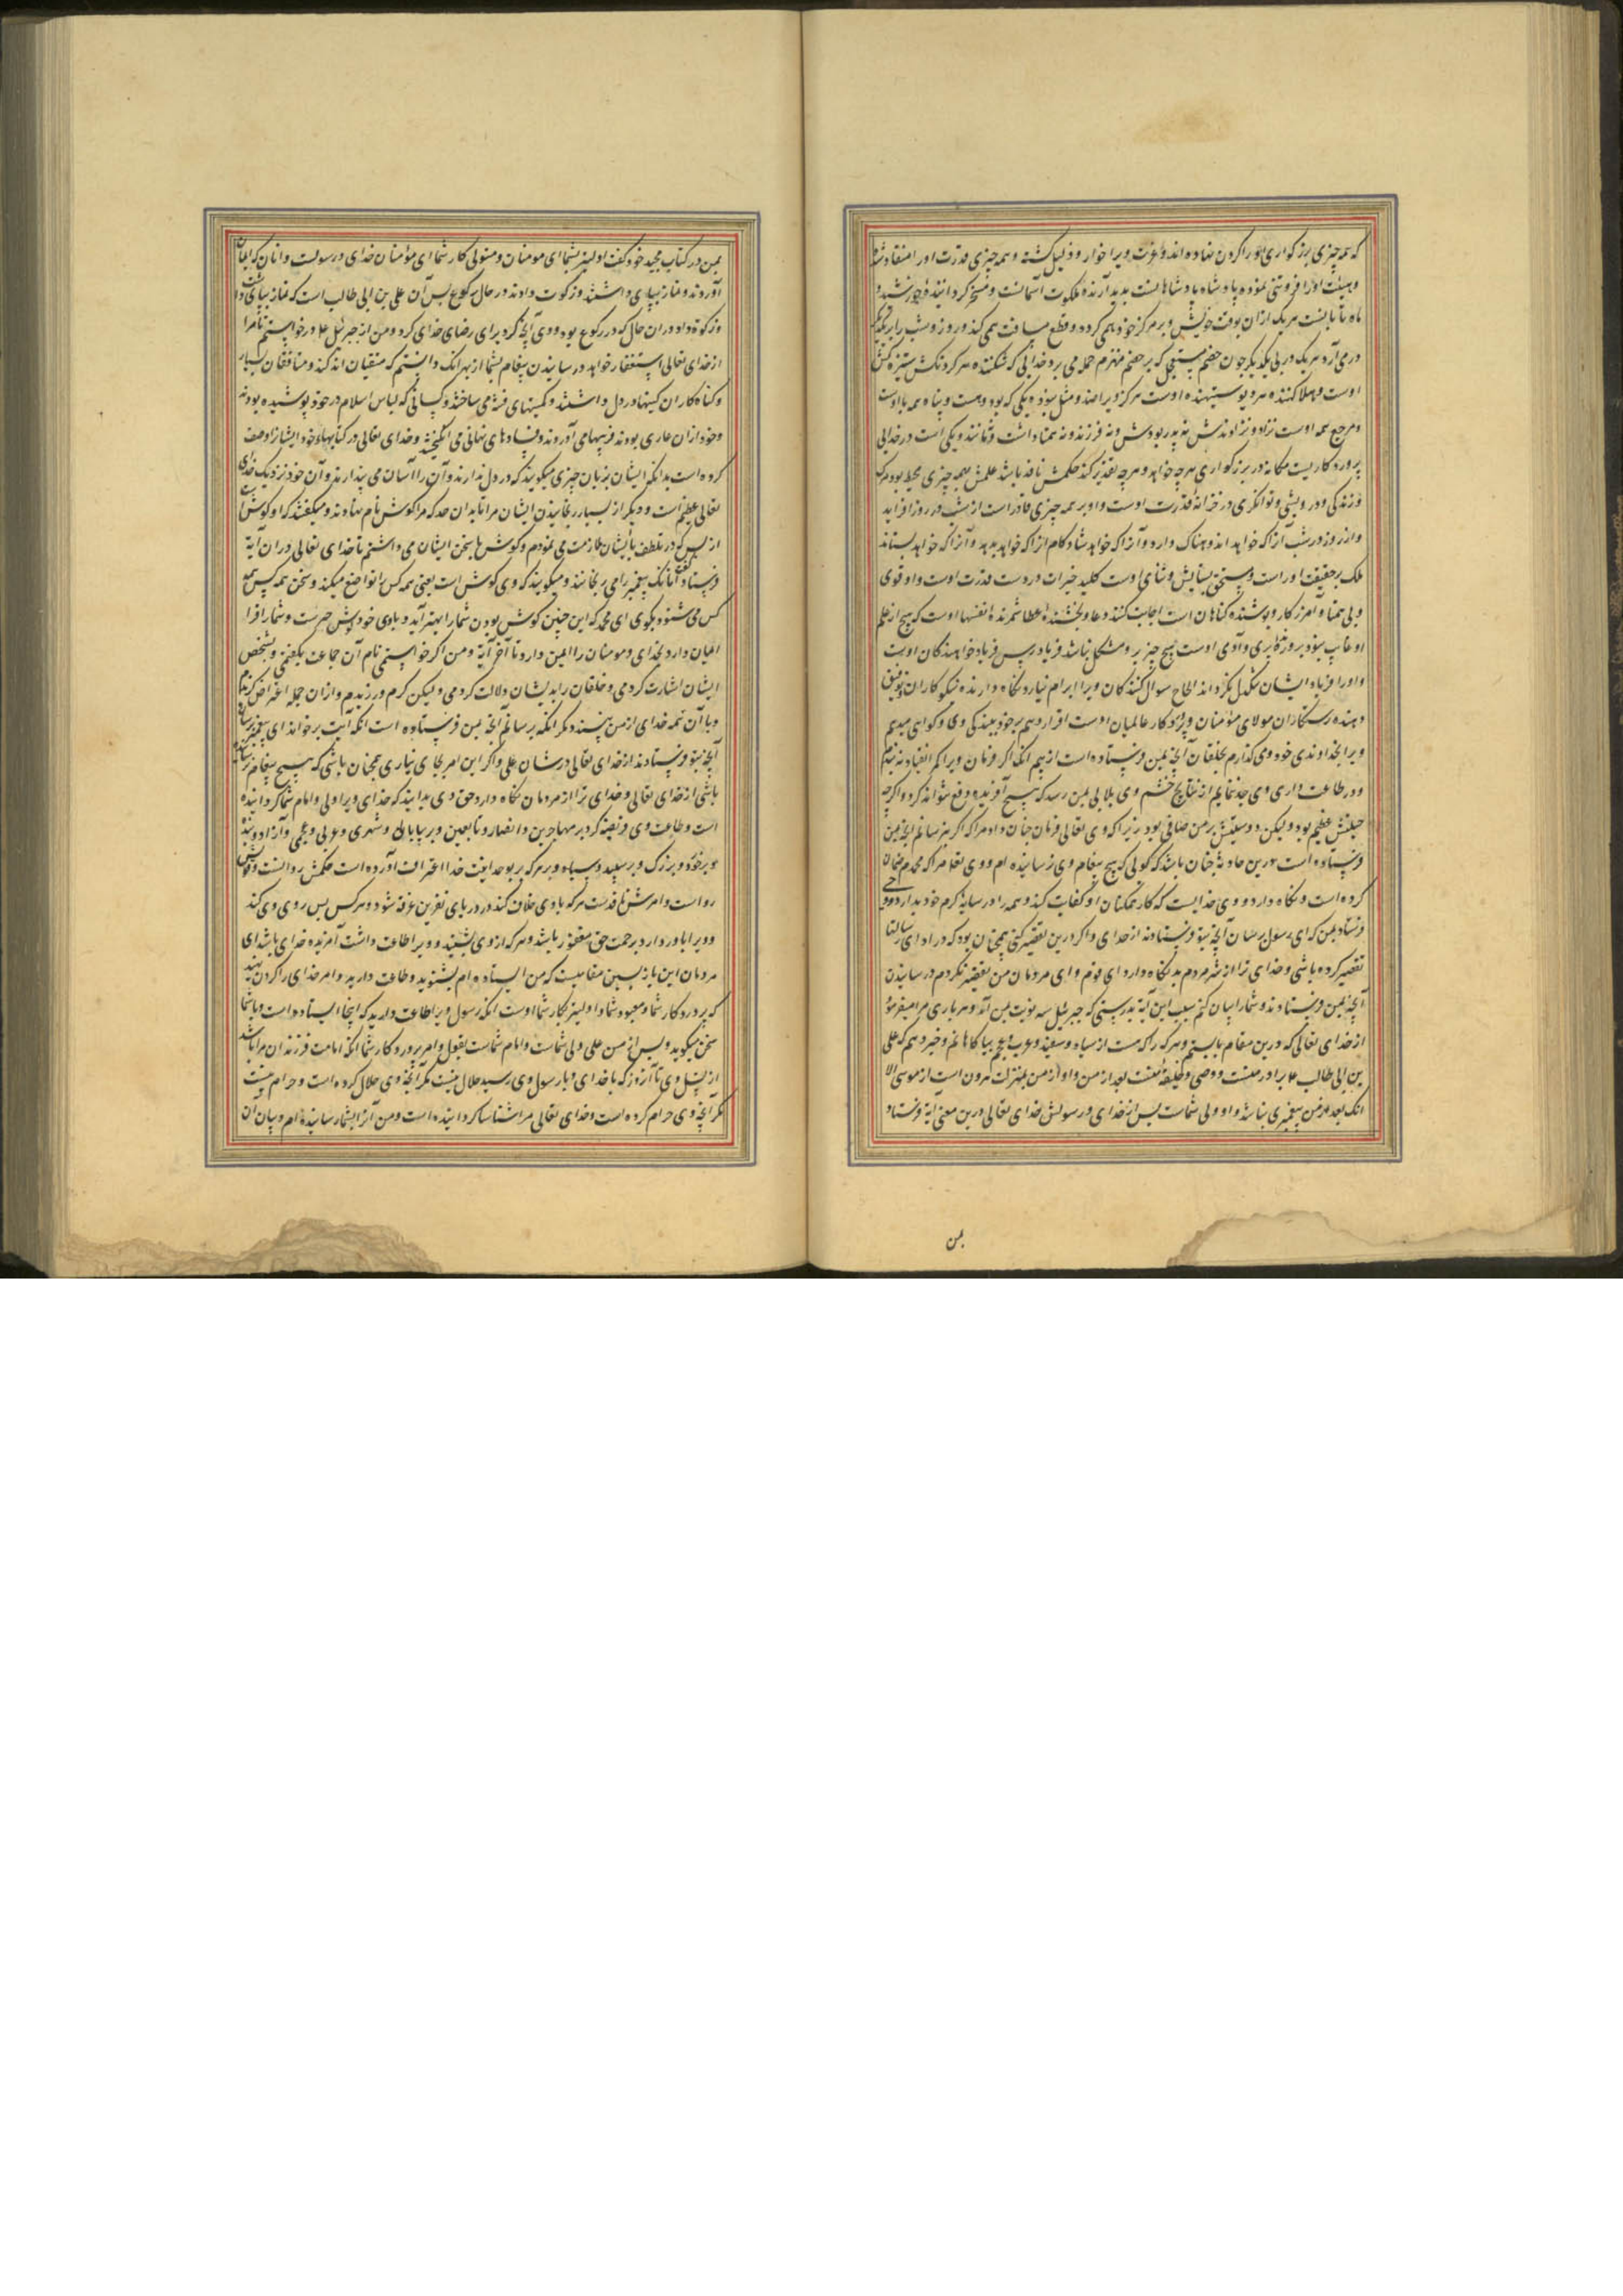 که همه چیزی بزرکواری او را کردن نهاده اند و عزت ویرا خوار و ذلیل کشته و همه چیزی قدرت اورا منقاد شد
و هیئت اورا فروتنی نموده پادشاه پادشاهانست پدید آرنده ملکوت آسمانست و مسخر کرداننده خورشید و
ماه تا بانست هر یک ازان بوقت خویش و بر مرکز خود همی کردد و قطع مسافت همی کند و روز و شب را بر یکدیکر
در می آرد هر یک در پی یکدیکر چون خصم مستعجل که بر خصم منهزم حمله می برد خدایی که شکننده هر کردنکش ستیزه کش
اوست و هلاک کننده هر دیو ستیهنده اوست هرکز ویرا ضد و مثل نبود و یکی که بود و هست و پناه همه با اوست
و مرجع همه اوست نزاد و نزادندش نه پدر بودش و نه فرزند و نه همتا داشت و نه مانند و یکی است در خدایی
پروردکاریست یکانه در بزرکواری هرچه خواهد و هرچه تقدیر کند حکمش نافذ باشد علمش بهمه چیزی محیط بود مرک
و زندکی و درویشی و توانکری در خزانه قدرت اوست و او بر همه چیزی قادر است از شب در روز افزاید
و از روز در شب آنرا که خواهد اندوهناک دارد و آنرا که خواهد شادکام آنرا که خواهد بدهد و آنرا که خواهد بستاند
ملک بر حقیقت اوراست و مستحق ستایش و ثنای اوست کلید خیرات در دست قدرت اوست و او قوی
و بی همتا و آمرزکار و پوشنده کناهان است اجابت کننده دعا و بخشنده عطا شمرنده نفسها اوست که هیچ از علم
او غایب نبود پروردکار پری و آدمی اوست هیچ چیز برو مشکل نباشد فریادرس فریاد خواهندکان اوست
و اورا فریاد ایشان تنکدل نکرداند الحاح سوال کنندکان ویرا ابرام نیارد نکاه دارنده نیکوکاران توفیق
دهنده رستکاران مولای مؤمنان و پروردکار عالمیان اوست اقرار دهم بر خود ببندکی وی و کواهی میدهم
ویرا بخداوندی خود و می کذارم بخلقان آنچه بمن فرستاده است از بیم آنکه اکر فرمان ویرا کم انقیاد نه بندم
و در طاعت داری وی جد ننمایم از نتایج خشم وی بلایی بمن رسد که هیچ آفریده دفع نتواند کرد و اکرچه
حیلتش عظیم بود و لیکن دوستیش بر من صافی بود زیرا که وی تعالی فرمان چنان داد مرا که اکر نرسانم آنچه بمن
فرستاده است درین حادثه چنان باشد که کویی که هیچ پیغام وی نرسانیده ام و وی تعالی مرا که محمدم ضمان
کرده است و نکاه دارد و وی خدایست که کار ممکنان او کفایت کند و همه را در سایه کرم خود بدارد و وحی
فرستاد بمن که ای رسول برسان آنچه بتو فرستادند از خدای و اکر درین تقصیر کنی همچنان بود که در ادای رسالتها
تقصیر کرده باشی و خدای ترا از شر مردم بد نکاه دارد ای قوم و ای مردمان من تقصیر نکردم در رسانیدن
آنچه بمن فرستادند و شما را بیان کنم سبب این آیة بدرستی که جبرئیل سه نوبت بمن آمد و هر باری مرا میفرمود
از خدای تعالی که درین مقام بایستم و هر که را که هست از سیاه و سفید و عرب و عجم بیاکاهانم و خبر دهم که علی
بن ابی طالب ۴ برادر منست و وصی و خلیفه منست بعد از من و او از من بمنزلت هرون است از موسی الا
آنک بعد از من پیغمبری نباشد و او ولی شماست پس از خدای و رسولش خدای تعالی درین معنی آیة فرستاد
بمن
بمن در کتاب مجید خود کفت اولیتر بشما ای مومنان و متولی کار شما ای مؤمنان خدای و رسولست و آنان که ایمان
آوردند و نماز بپای داشتند و زکوت دادند در حال رکوع پس آن علی بن ابی طالب است که نماز بپای داشت
و زکوة داد در آن حال که در رکوع بود و وی آنچه کرد برای رضای خدای کرد و من از جبرئیل ۴ درخواستم تا مرا
از خدای تعالی استغفار خواهد در رسانیدن پیغام بشما از بهر آنک دانستم که متقیان اندکند و منافقان بسیار
و کناه کاران کینها در دل داشتند و کمینهای فتنه می ساختند و کسانی که لباس اسلام در خود پوشیده بودند
و خود ازان عاری بودند فریبها می آوردند و فسادهای نهانی می انکیختند و خدای تعالی در کتابهاء خود ایشانرا وصف
کرده است بدانکه ایشان بزبان چیزی میکویند که در دل ندارند و آن را آسان می پندارند و آن خود نزدیک خدای
تعالی عظیم است و دیکر از بسیار رنجانیدن ایشان مرا تا بدان حد که مرا کوش نام نهادند و میکفتند که او کوش است
از بس که در تلطف با ایشان ملازمت می نمودم و کوش ها بسخن ایشان می داشتم تا خدای تعالی در آن آیة
فرستاد و کفت آنانک پیغمبر را می رنجانند و میکویند که وی کوش است یعنی همه کس را تواضع میکند و سخن همه کس بسمع
کس می شنود بکوی ای محمد که این چنین کوش بودن شما را بهتر آید و باوی خود کوش خیرست و شما را فرا
ایمان دارد بخدای و مومنان را امین دارد تا آخر آیة و من اکر خواستمی نام آن جماعت بکفتمی و بشخص
ایشان اشارت کردمی و خلقان را بدیشان دلالت کردمی و لیکن کرم ورزیدم و ازان جمله اعراض کردم
و با آن همه خدای از من نپسندد مکر آنکه برسانم آنچه بمن فرستاده است آنکه آیت برخواند ای پیغمبر برسان
آنچه بتو فرستادند از خدای تعالی در شان علی و اکر این امر بجای نیاری همچنان باشی که هیچ پیغام نرسانیده
باشی از خدای تعالی و خدای ترا از مردمان نکاه دارد حق وی بدانید که خدای ویرا ولی و امام شما کردانیده
است و طاعت وی فریضه کرد بر مهاجرین و انصار و تابعین و بر بیابانی و شهری و عربی و عجمی و آزاد و بنده
و بر خورد و بزرک و بر سپید و سیاه و بر هر که بوحدانیت خدا اعتراف آورده است حکمش روانست و قولش
رواست و امرش نافذست هر که باوی خلاف کند در دریای نفرین غرقه شود و هرکس پس روی وی کند
و ویرا باور دارد برحمت حق مغفور باشد و هر که از وی بشنید و ویرا طاعت داشت آمرزیده خدای باشد ای
مردمان این بازپسین مقامیست که من ایستاده ام بشنوید و طاعت دارید و امر خدای را کردن نهید
که پروردکار شما و معبود شما و اولیتر بکار شما اوست آنکه رسول ویرا طاعت دارید که اینجا ایستاده است و با شما
سخن میکوید و پس از من علی ولی شماست و امام شماست بقول و امر پروردکار شما آنکه امامت فرزندان مرا باشد
از نسل وی تا آنروز که با خدای و با رسول وی رسید حلال نیست مکر آنچه وی حلال کرده است و حرام نیست
مکر آنچه وی حرام کرده است و خدای تعالی مرا شناسا کردانیده است و من آنرا بشما رسانیده ام و بیان آن